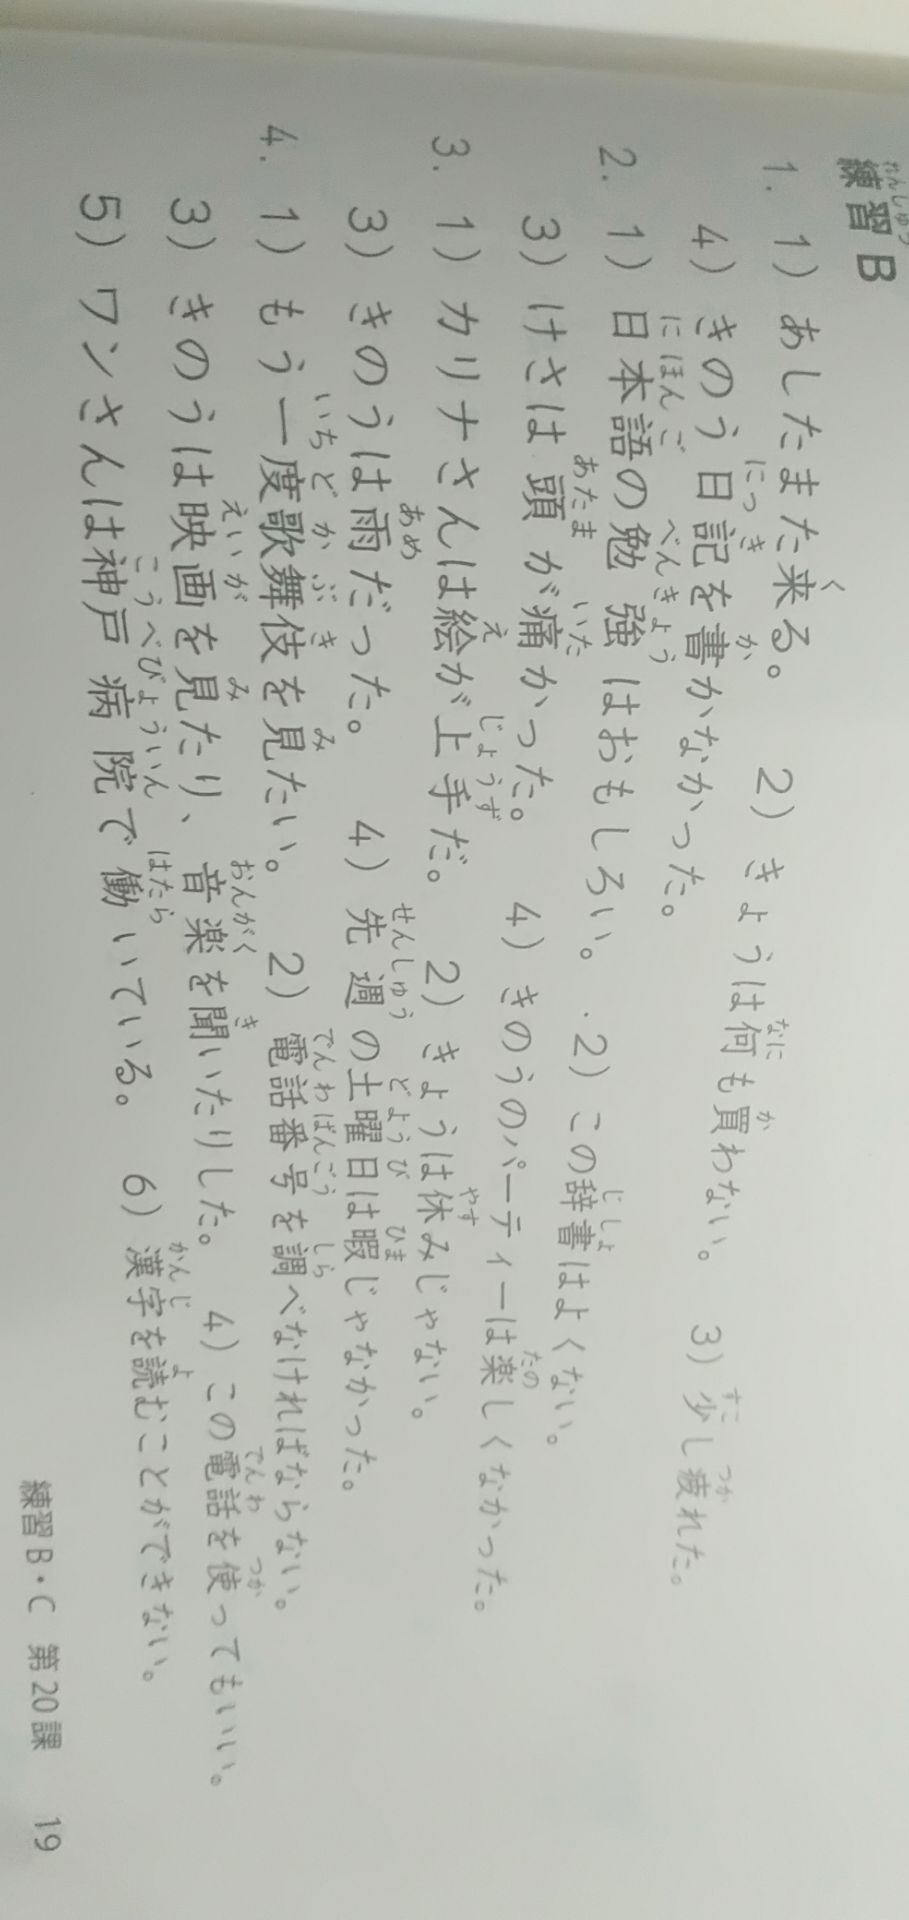 練習B
1. 1) あしたまた来る。 2) きょうは何も買わない。 3) 少し疲れた。
4) きのう日記を書かなかった。
2. 1) 日本語の勉強はおもしろい。 2) この辞書はよくない。
3) けさは頭が痛かった。 4) きのうのパーティーは楽しくなかった。
3. 1) カリナさんは絵が上手だ。 2) きょうは休みじゃない。
3) きのうは雨だった。 4) 先週の土曜日は暇じゃなかった。
4. 1) もう一度歌舞伎を見たい。 2) 電話番号を調べなければならない。
3) きのうは映画を見たり、音楽を聞いたりした。 4) この電話を使ってもいい。
5) ワンさんは神戸病院で働いている。 6) 漢字を読むことができない。
練習B・C 第20課 19